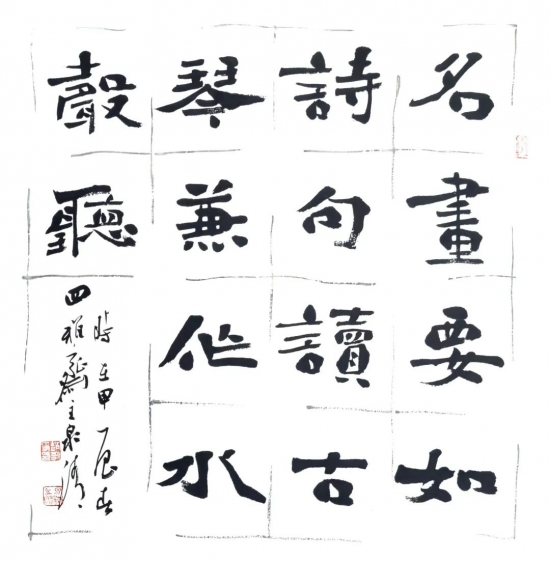 名畫要如
詩句讀古
琴兼作水
聲聽
時在甲辰春
四雅齋主泉清